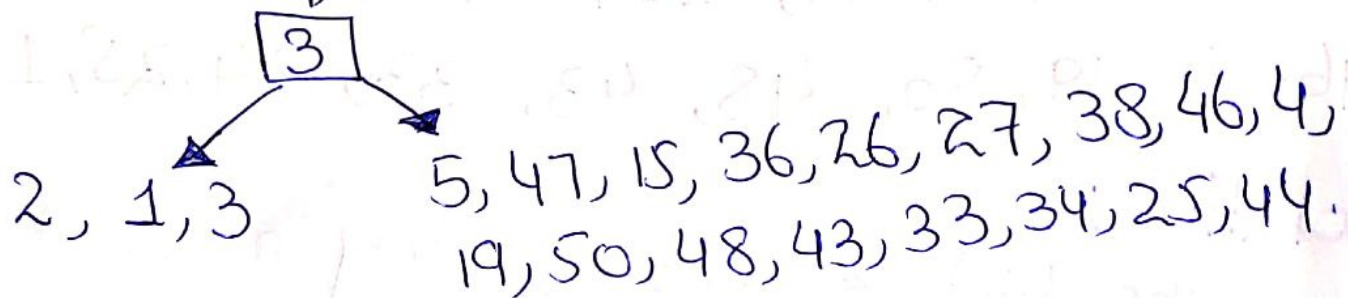 3
2, 1, 3
5, 47, 15, 36, 26, 27, 38, 46, 4,
19, 50, 48, 43, 33, 34, 25, 44.